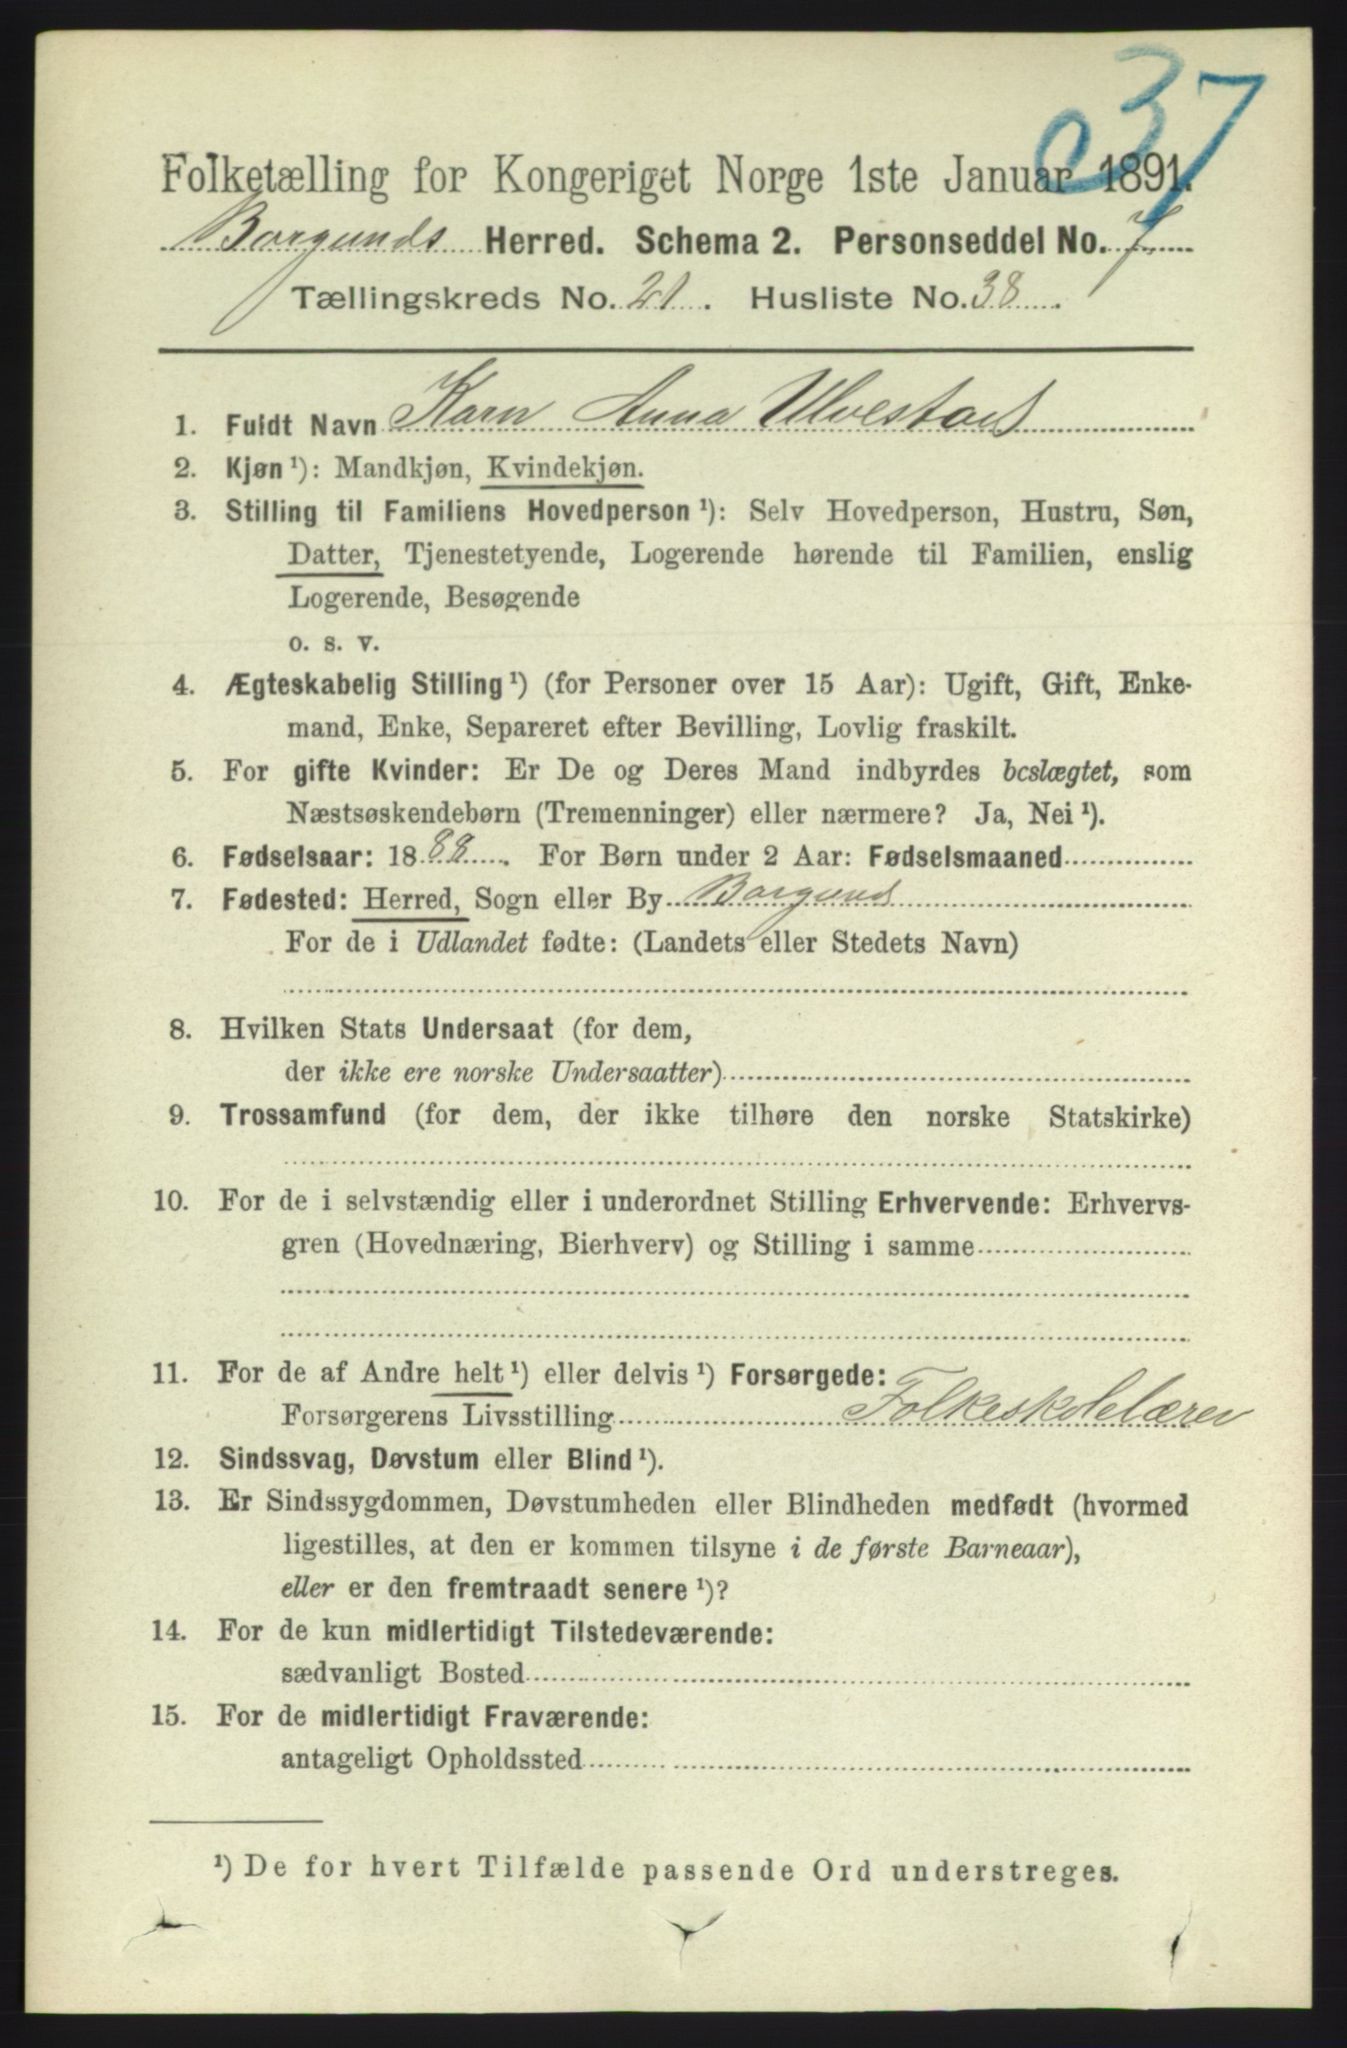 037
Folketælling for Kongeriget Norge 1ste Januar 1891.
Borgunds Herred. Schema 2. Personseddel No. 7
Tællingskreds No. 21. Husliste No. 38.
1. Fuldt Navn Karn Anna Ulvestad
2. Kjøn ¹): Mandkjøn, Kvindekjøn.
3. Stilling til Familiens Hovedperson ¹): Selv Hovedperson, Hustru, Søn,
Datter, Tjenestetyende, Logerende hørende til Familien, enslig
Logerende, Besøgende
o. s. v.
4. Ægteskabelig Stilling ¹) (for Personer over 15 Aar): Ugift, Gift, Enke-
mand, Enke, Separeret efter Bevilling, Lovlig fraskilt.
5. For gifte Kvinder: Er De og Deres Mand indbyrdes beslægtet, som
Næstsøskendebørn (Tremenninger) eller nærmere? Ja, Nei ¹).
6. Fødselsaar: 1888. For Børn under 2 Aar: Fødselsmaaned
7. Fødested: Herred, Sogn eller By Borgund
For de i Udlandet fødte: (Landets eller Stedets Navn)
8. Hvilken Stats Undersaat (for dem,
der ikke ere norske Undersaatter)
9. Trossamfund (for dem, der ikke tilhøre den norske Statskirke)
10. For de i selvstændig eller i underordnet Stilling Erhvervende: Erhvervs-
gren (Hovednæring, Bierhverv) og Stilling i samme
11. For de af Andre helt ¹) eller delvis ¹) Forsørgede:
Forsørgerens Livsstilling Folkeskolelærer
12. Sindssvag, Døvstum eller Blind ¹).
13. Er Sindssygdommen, Døvstumheden eller Blindheden medfødt (hvormed
ligestilles, at den er kommen tilsyne i de første Barneaar),
eller er den fremtraadt senere ¹)?
14. For de kun midlertidigt Tilstedeværende:
sædvanligt Bosted
15. For de midlertidigt Fraværende:
antageligt Opholdssted
¹) De for hvert Tilfælde passende Ord understreges.